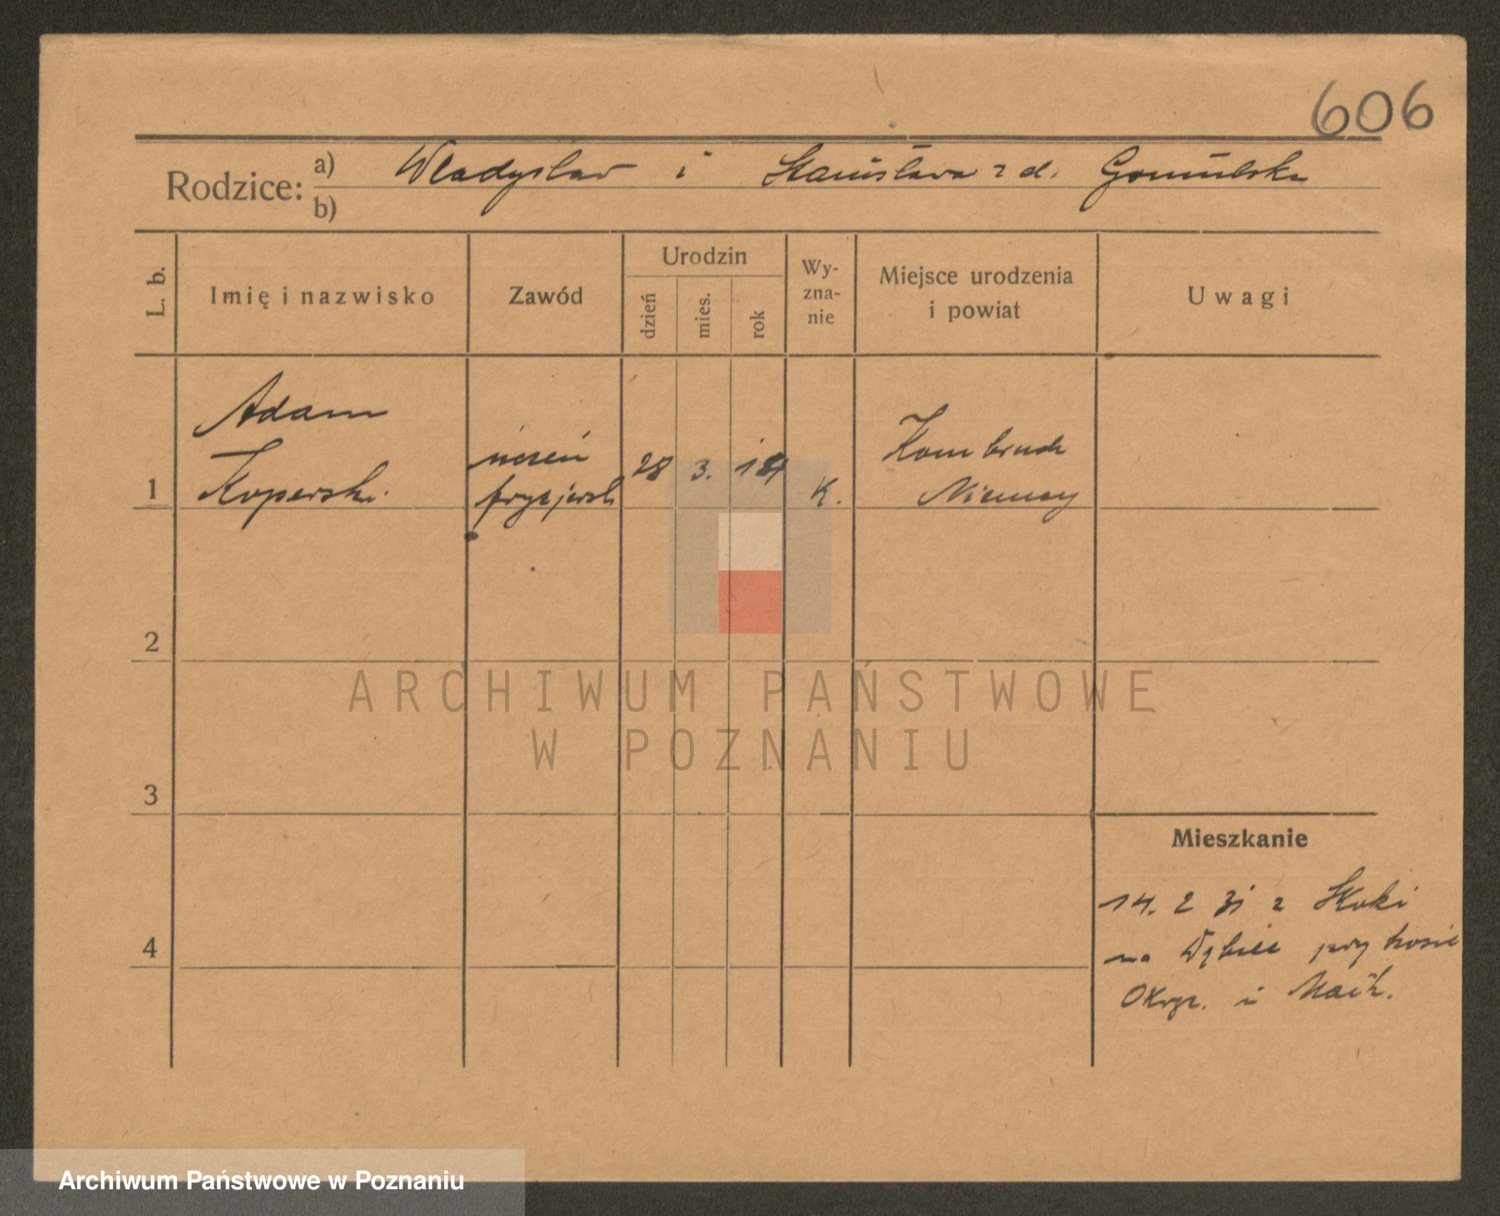 606
Rodzice: a) Władysław i Stanisława z d. Gomulska
b)
L. b.
Imię i nazwisko
Zawód
Urodzin
dzień
mies.
rok
Wy-
zna-
nie
Miejsce urodzenia
i powiat
Uwagi
Adam
Koperski
uczeń
fryzjersk
1
28
3.
K.
Niemcy
2
3
4
Mieszkanie
14. 2 31 z Skoki
na przy
i
ARCHIWUM PAŃSTWOWE
W POZNANIU
Archiwum Państwowe w Poznaniu